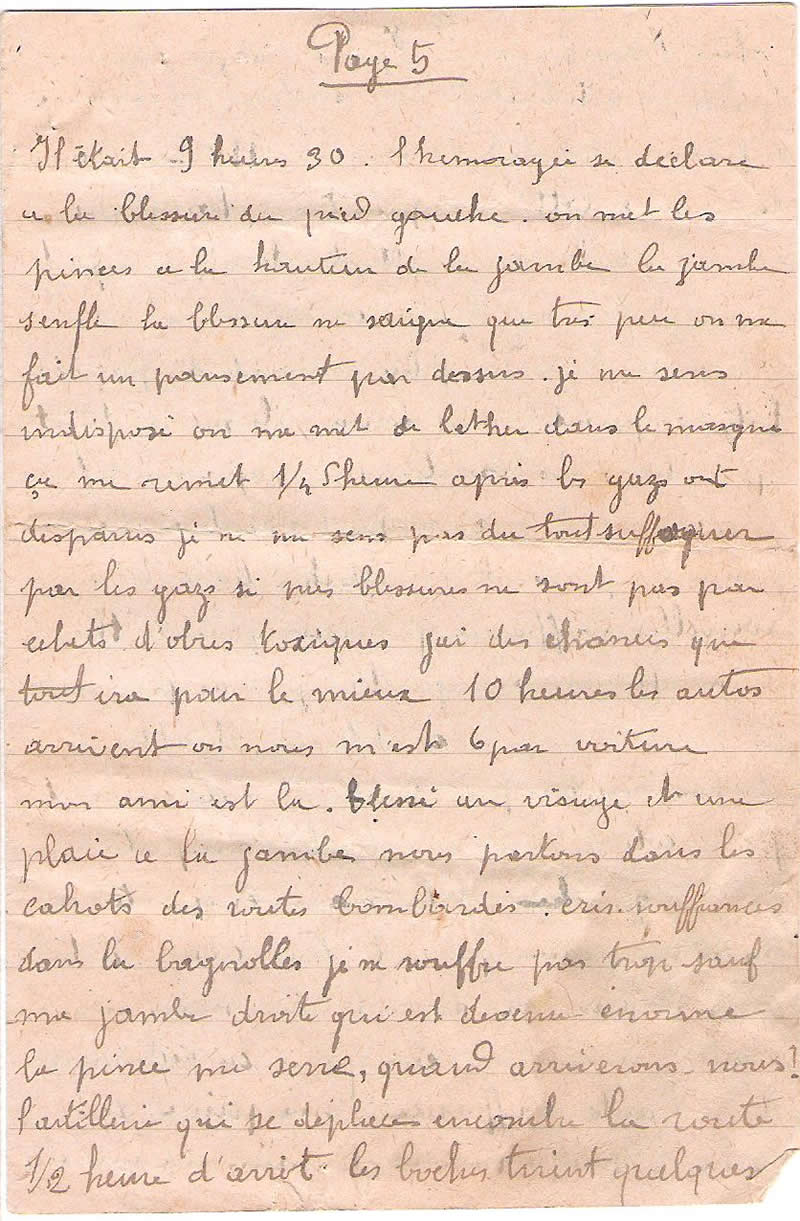 Page 5
Il était 9 heures 30. l'hemoragie se déclare
a la blessure du pied gauche. on met les
pinces a la hauteur de la jambe la jambe
senfle la blessure ne saigne que très peu on me
fait un pansement par dessus. je me sens
indisposé on me met de lether dans le masque
ça me remet 1/4 d'heure après les gazs ont
disparus je ne me sens pas du tout suffoquer
par les gazs si mes blessures ne sont pas par
eclats d'obus toxiques jai des chances que
tout ira pour le mieux 10 heures les autos
arrivent on nous m'est 6 par voiture
mon ami est la. blessé au visage et une
plaie a la jambe nous partons dans les
cahots des routes bombardés. cris. souffrances
dans la bagnolles je ne souffre pas trop sauf
ma jambe droite qui est devenue énorme
la pince me serre, quand arriverons nous!
l'artillerie qui se deplace encombre la route
1/2 heure d'arrêt. les boches tirent quelques